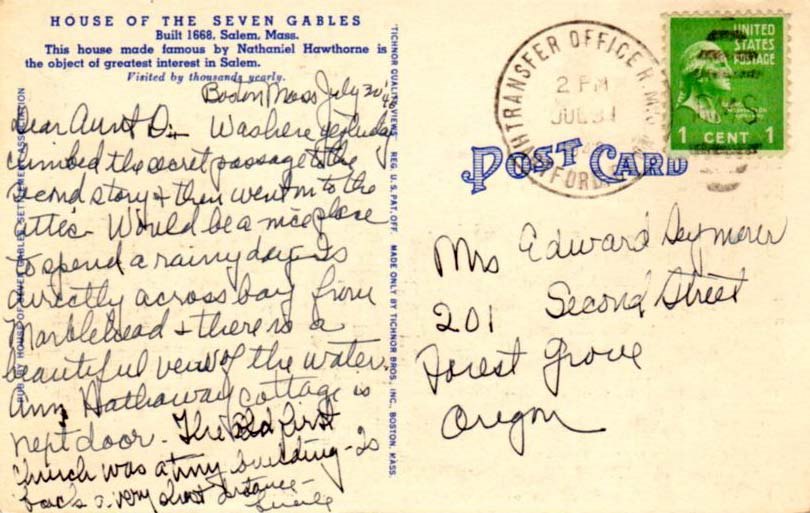 HOUSE OF THE SEVEN GABLES
Built 1668, Salem, Mass.
This house made famous by Nathaniel Hawthorne is
the object of greatest interest in Salem.
Visited by thousands yearly.
Boston Mass July 30
Dear Aunt D:- Was here yesterday
climbed the secret passage to the
second story & then went on to the
attic. Would be a nice place
to spend a rainy day. Is
directly across bay from
Marblehead & there is a
beautiful view of the water.
Ann Hathaway Cottage is
next door. The old first
church was a tiny building - is
back a very short distance -
Lucile
PUB. BY HOUSE OF SEVEN GABLES SETTLEMENT ASSOCIATION
"TICHNOR QUALITY VIEWS" REG. U. S. PAT. OFF. MADE ONLY BY TICHNOR BROS., INC., BOSTON, MASS.
TRANSFER OFFICE
2 PM
JUL 31
UNITED
STATES
POSTAGE
1 CENT 1
POST CARD
Mrs Edward Seymour
201 Second Street
Forest Grove
Oregon